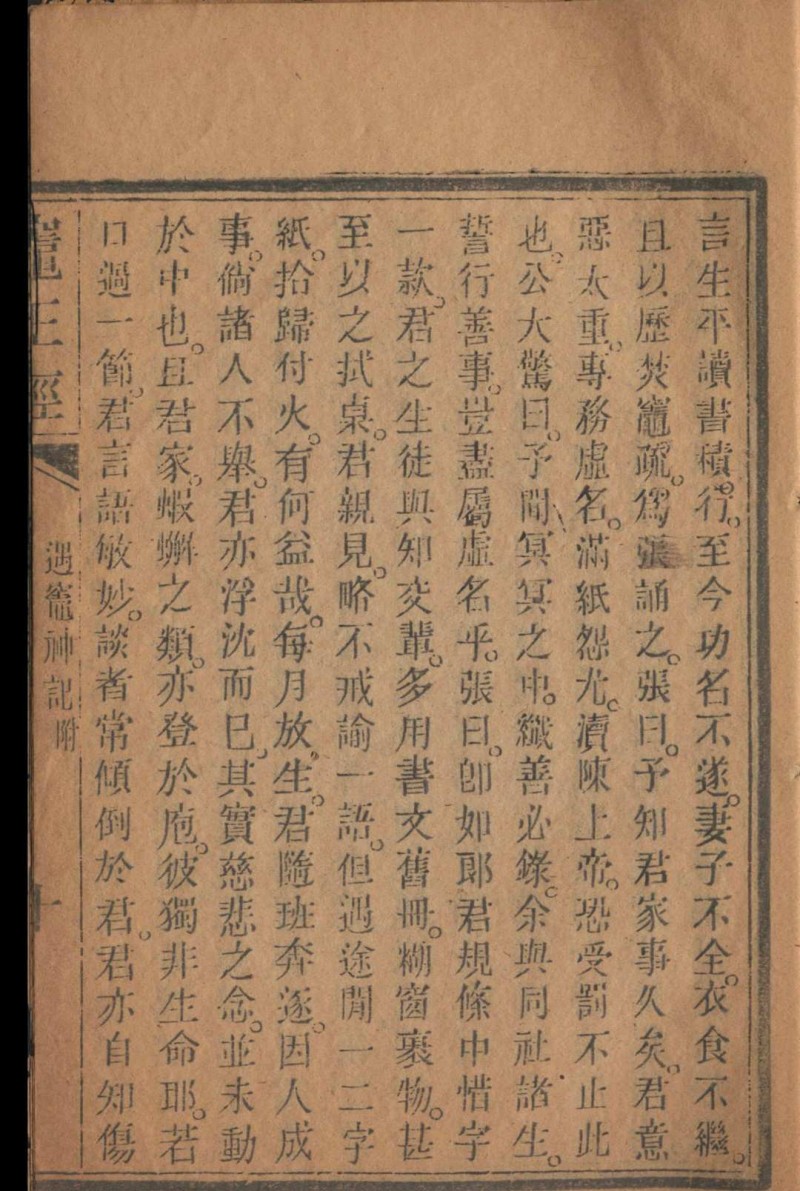 言生平讀書積行。至今功名不遂。妻子不全。衣食不繼。
且以歷焚竈疏。爲張誦之。張曰。予知君家事久矣。君意
惡太重。專務虛名。滿紙怨尤。瀆陳上帝。恐受罰不止此
也。公大驚曰。予聞冥冥之中。纖善必錄。余與同社諸生。
誓行善事。豈盡屬虛名乎。張曰。卽如郎君規條中惜字
一款。君之生徒與知交輩。多用書文舊冊。糊窗裹物。甚
至以之拭桌。君親見。略不戒諭一語。但遇途閒一二字
紙。拾歸付火。有何益哉。每月放生。君隨班奔逐。因人成
事。倘諸人不舉。君亦浮沈而已。其實慈悲之念。並未動
於中也。且君家。蝦蠏之類。亦登於庖。彼獨非生命耶。若
口過一節。君言語敏妙。談者常傾倒於君。君亦自知傷
竈王經
遇竈神記附
十